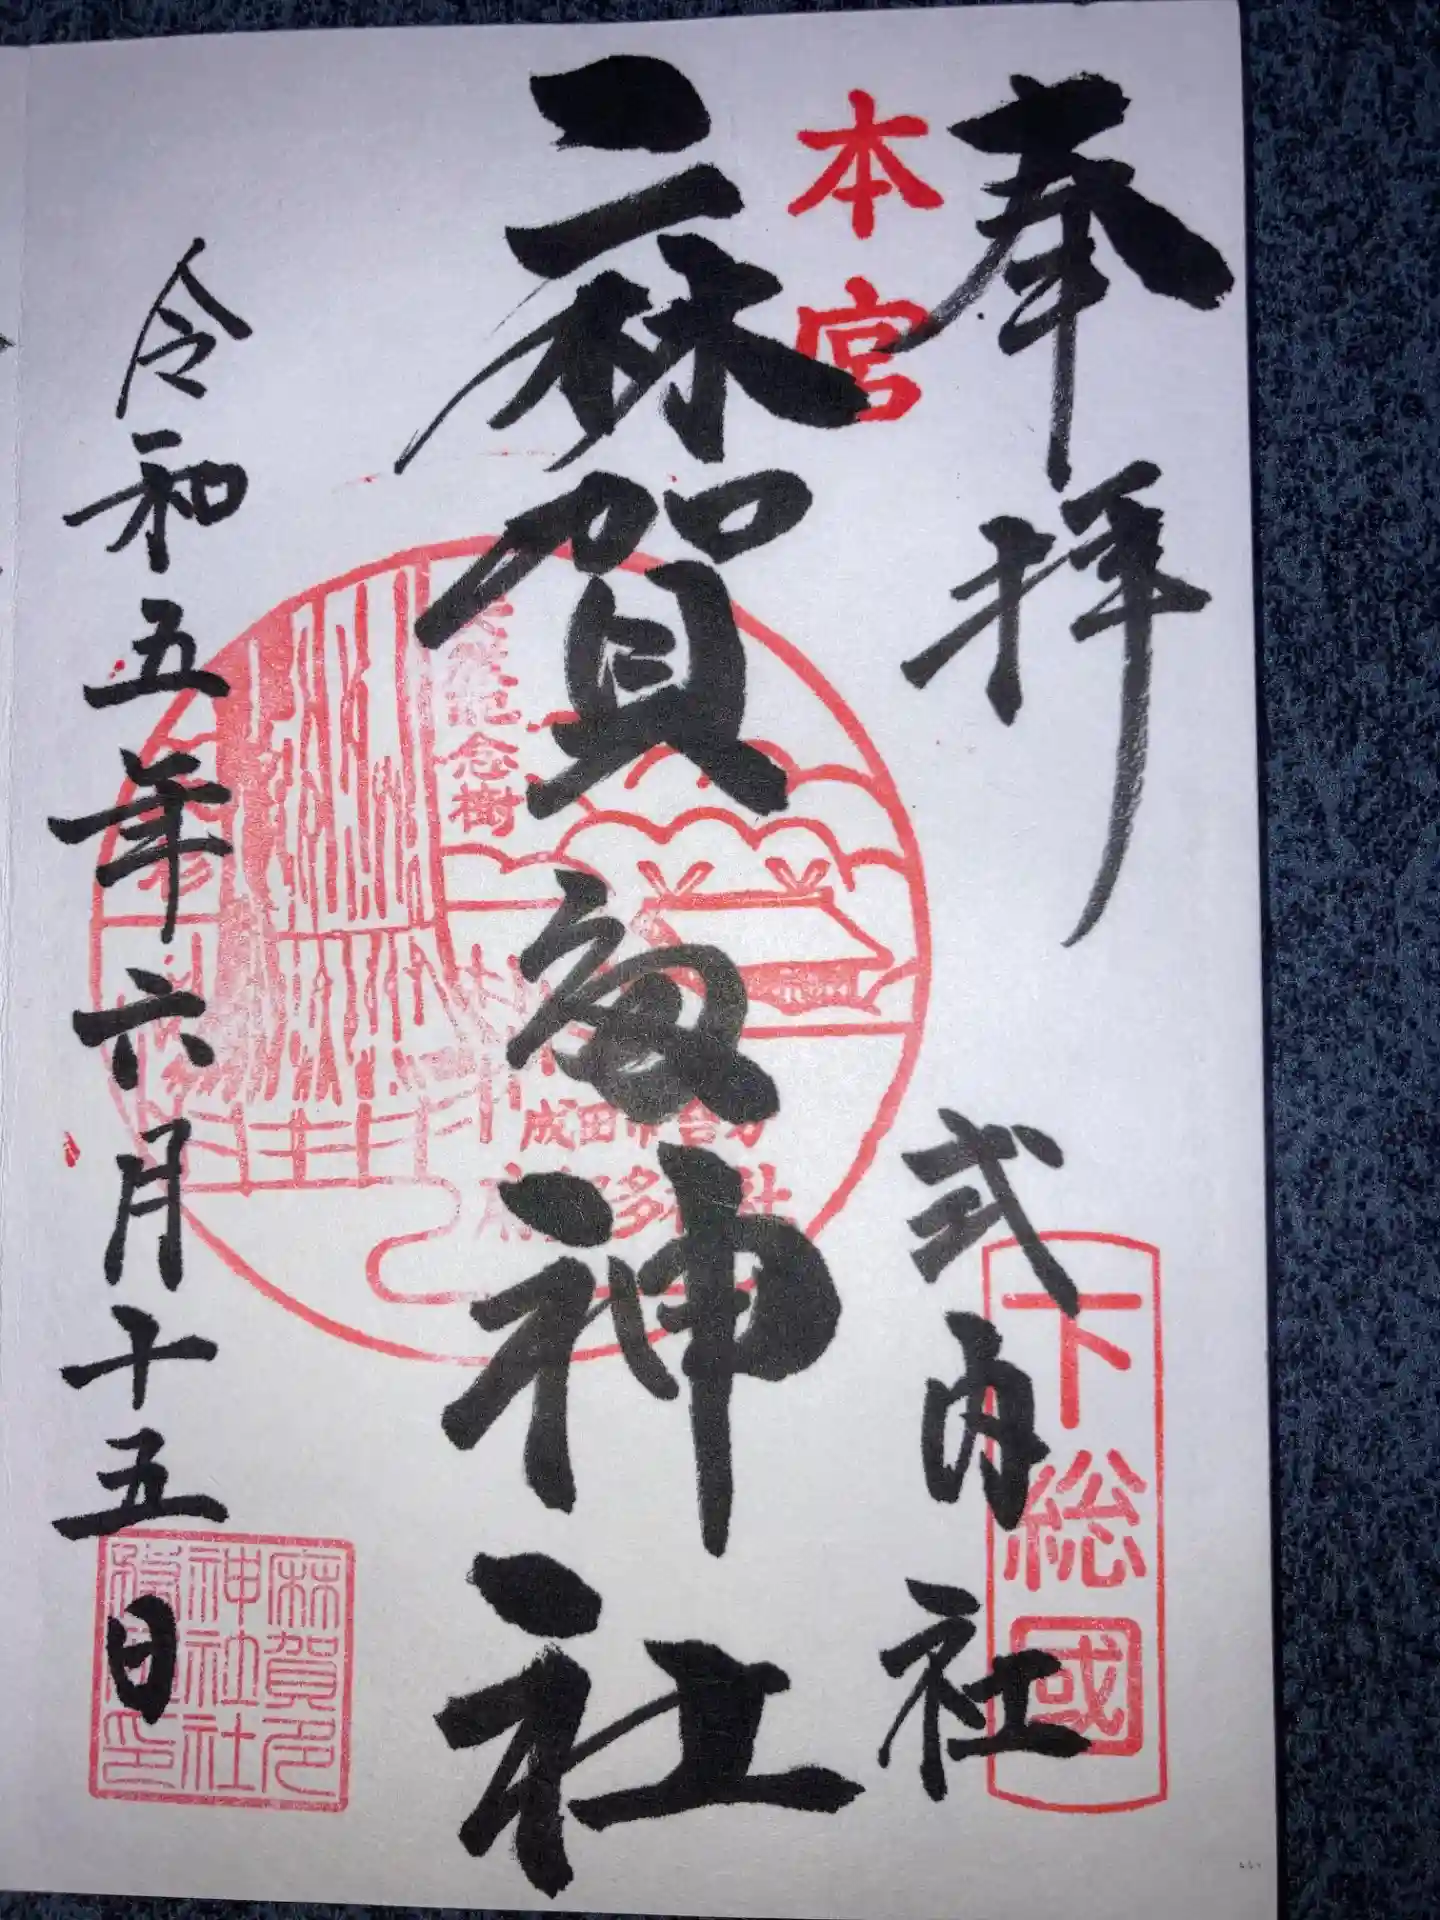 奉拝
式内社
下総國
本宮
麻賀多神社
記念樹
大杉
成田市台方
麻賀多神社
令和五年六月十五日
麻賀多
神社社
印